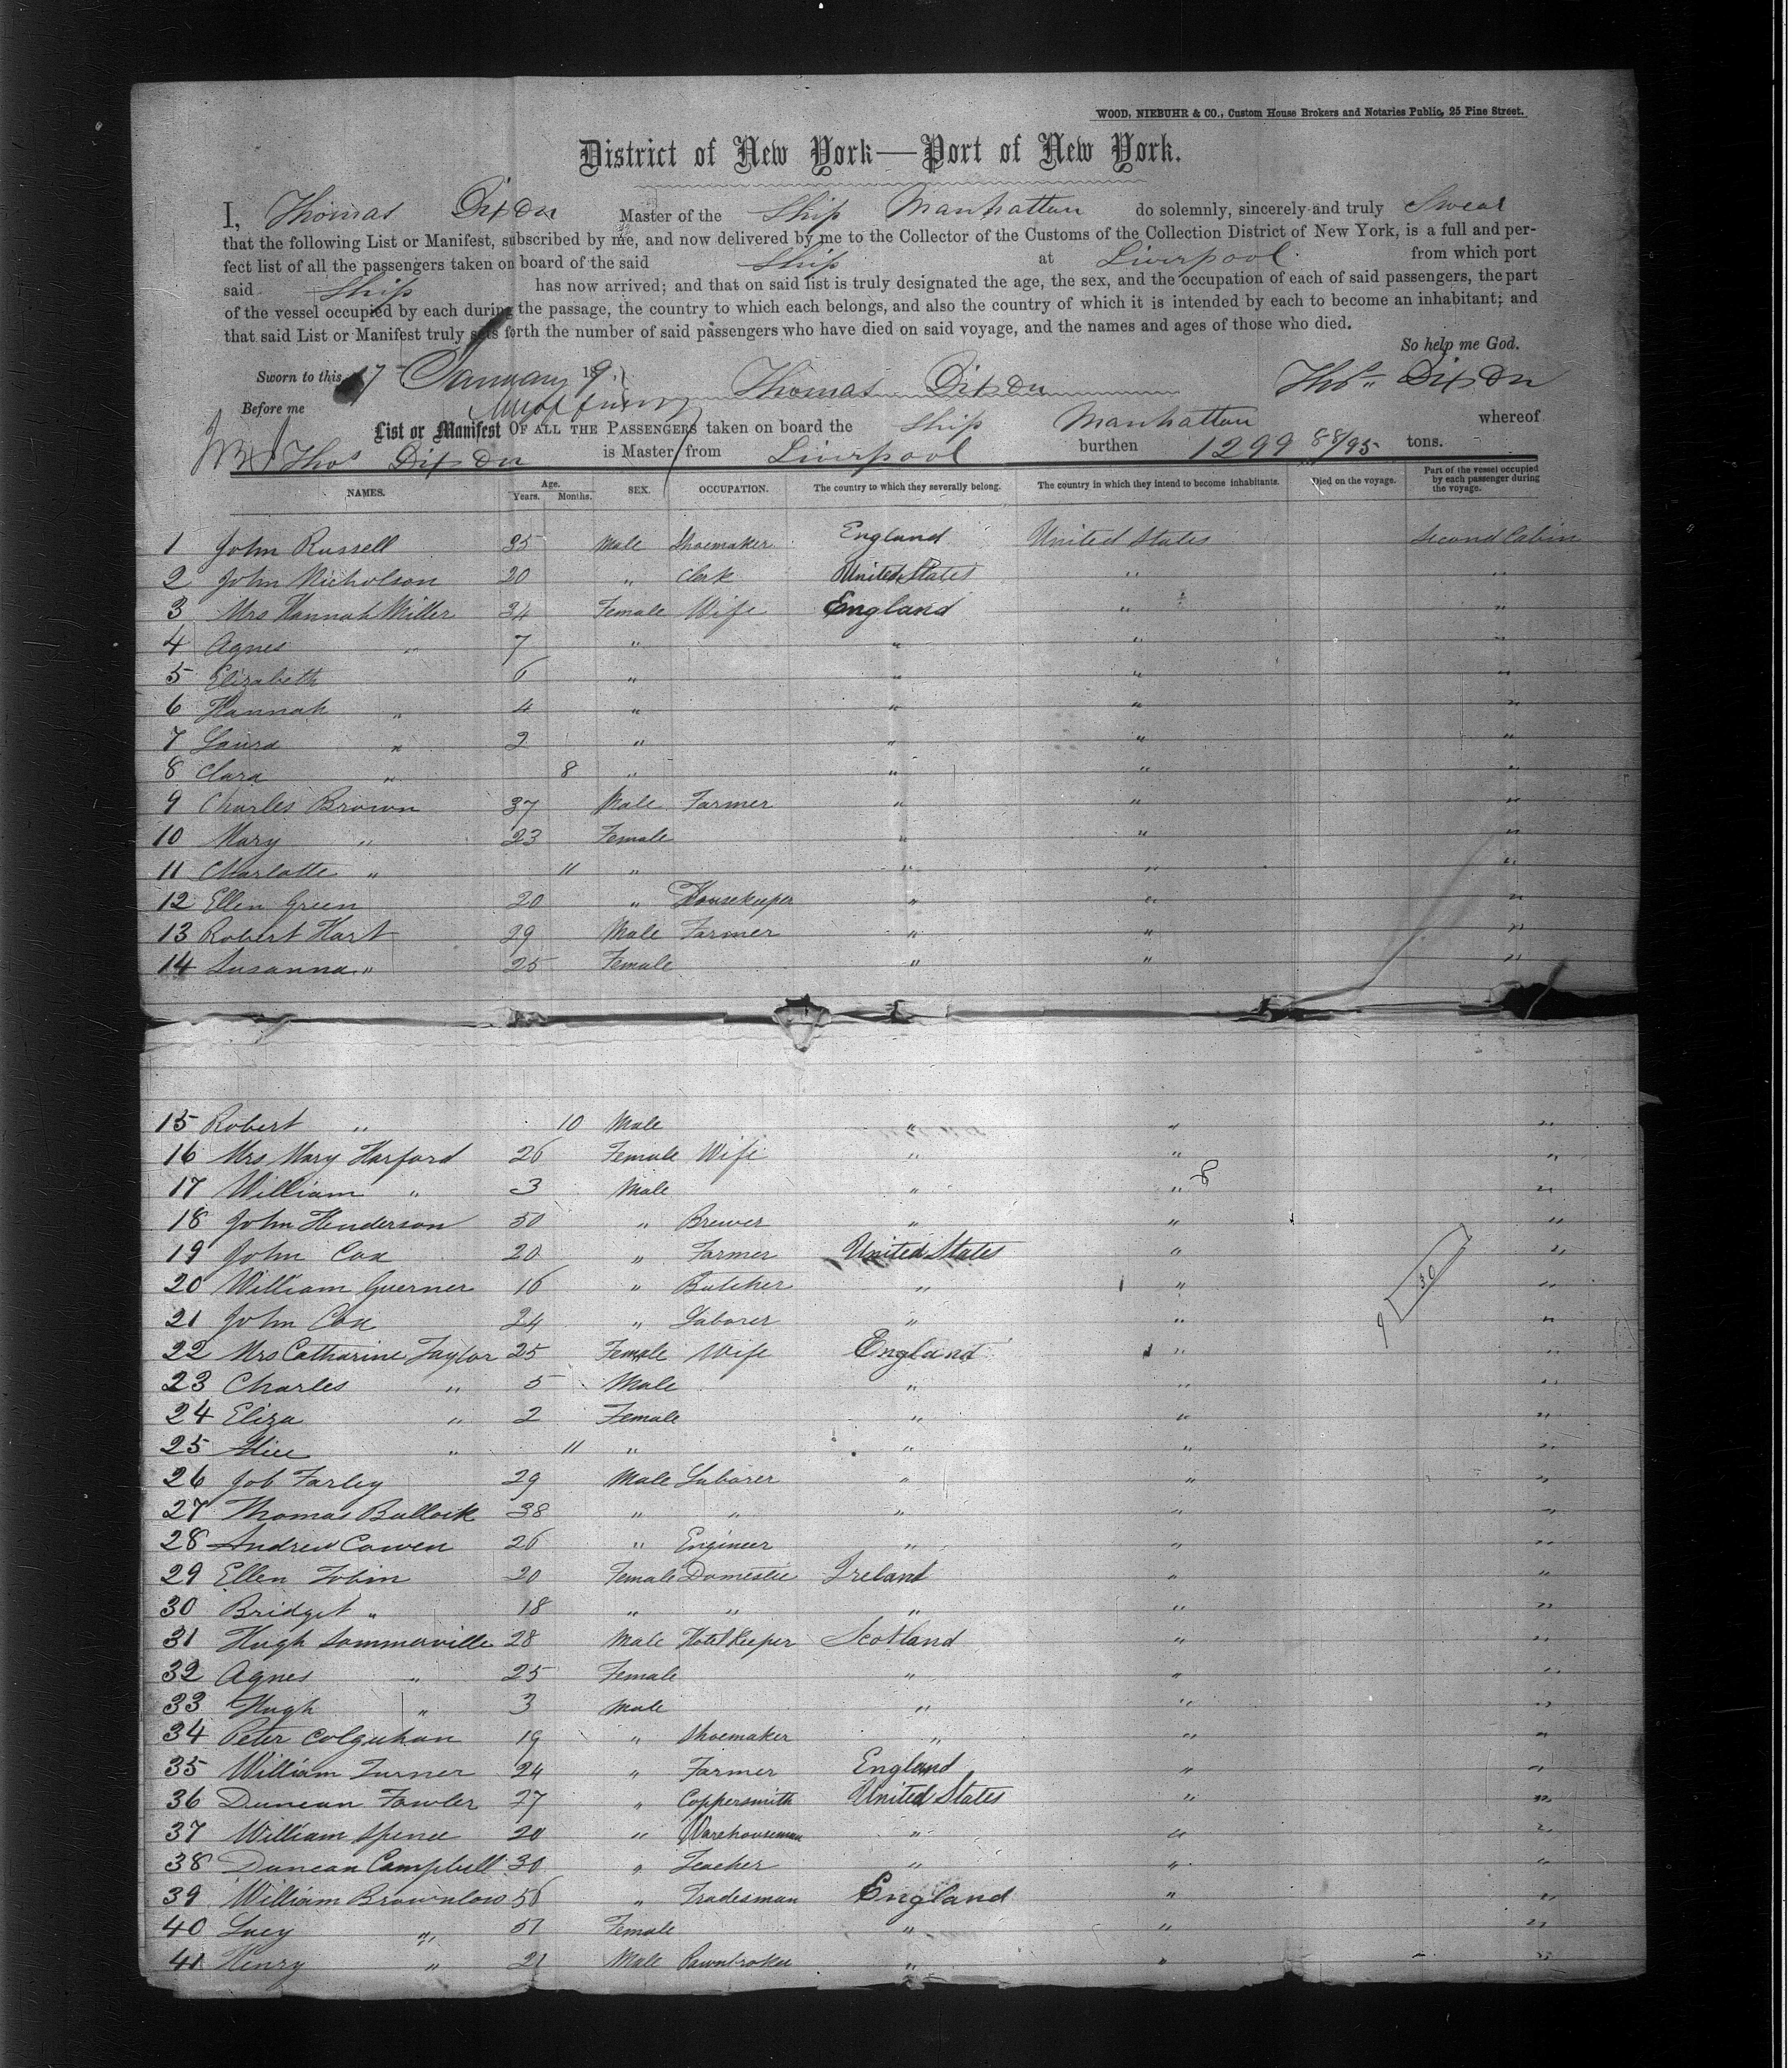 WOOD, NIEBUHR & CO., Custom House Brokers and Notaries Public, 25 Pine Street.
District of New York—Port of New York.
I, Thomas Dixon Master of the Ship Manhattan do solemnly, sincerely and truly Swear
that the following List or Manifest, subscribed by me, and now delivered by me to the Collector of the Customs of the Collection District of New York, is a full and per-
fect list of all the passengers taken on board of the said Ship at Liverpool from which port
said Ship has now arrived; and that on said list is truly designated the age, the sex, and the occupation of each of said passengers, the part
of the vessel occupied by each during the passage, the country to which each belongs, and also the country of which it is intended by each to become an inhabitant; and
that said List or Manifest truly sets forth the number of said passengers who have died on said voyage, and the names and ages of those who died.
So help me God.
Sworn to this 7 January 18 Thomas Dixon Thos Dixon
Before me
List or Manifest OF ALL THE PASSENGERS taken on board the Ship Manhattan whereof
Thos Dixon is Master, from Liverpool burthen 1299 88/95 tons.
NAMES. Age. Years. Months. SEX. OCCUPATION. The country to which they severally belong. The country in which they intend to become inhabitants. Died on the voyage. Part of the vessel occupied by each passenger during the voyage.
1 John Russell 35 Male Shoemaker England United States Second Cabin
2 John Nicholson 20 " Clerk United States " "
3 Mrs Hannah Miller 34 Female Wife England " "
4 Agnes " 7 " " " "
5 Elizabeth 6 " " " "
6 Hannah " 4 " " " "
7 Laura " 2 " " " "
8 Clara " 8 " " " "
9 Charles Brown 37 Male Farmer " " "
10 Mary " 23 Female " " "
11 Charlotte " 11 " " " "
12 Ellen Green 20 " Housekeeper " " "
13 Robert Hart 29 Male Farmer " " "
14 Susanna " 25 Female " " "
15 Robert " 10 Male " " "
16 Mrs Mary Harford 26 Female Wife " " "
17 William " 3 Male " " 8 "
18 John Henderson 50 " Brewer " " "
19 John Cox 20 " Farmer United States " "
20 William Guerner 16 " Butcher " " 30 "
21 John Cox 24 " Laborer " " "
22 Mrs Catharine Taylor 25 Female Wife England " "
23 Charles " 5 Male " " "
24 Eliza " 2 Female " " "
25 Alice " 11 " " " "
26 Job Farley 29 Male Laborer " " "
27 Thomas Bullock 38 " " " " "
28 Andrew Cowen 26 " Engineer " " "
29 Ellen Tobin 20 Female Domestic Ireland " "
30 Bridget " 18 " " " " "
31 Hugh Sommerville 28 Male Hotel Keeper Scotland " "
32 Agnes " 25 Female " " "
33 Hugh " 3 Male " " "
34 Peter Colquhan 19 " Shoemaker " " "
35 William Turner 24 " Farmer England " "
36 Duncan Fowler 27 " Coppersmith United States " "
37 William Spence 20 " Warehouseman " " "
38 Duncan Campbell 30 " Teacher " " "
39 William Brownlow 56 " Tradesman England " "
40 Lucy " 57 Female " " "
41 Henry " 21 Male Pawnbroker " " "